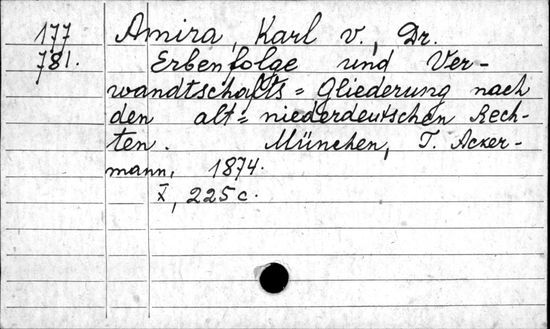 177 Amira, Karl v., Dr.
781. Erbenfolge und Ver-
wandtschafts=Gliederung nach
den alt=niederdeutschen Rech-
ten. München, T. Acker-
mann, 1874.
X, 225 c.